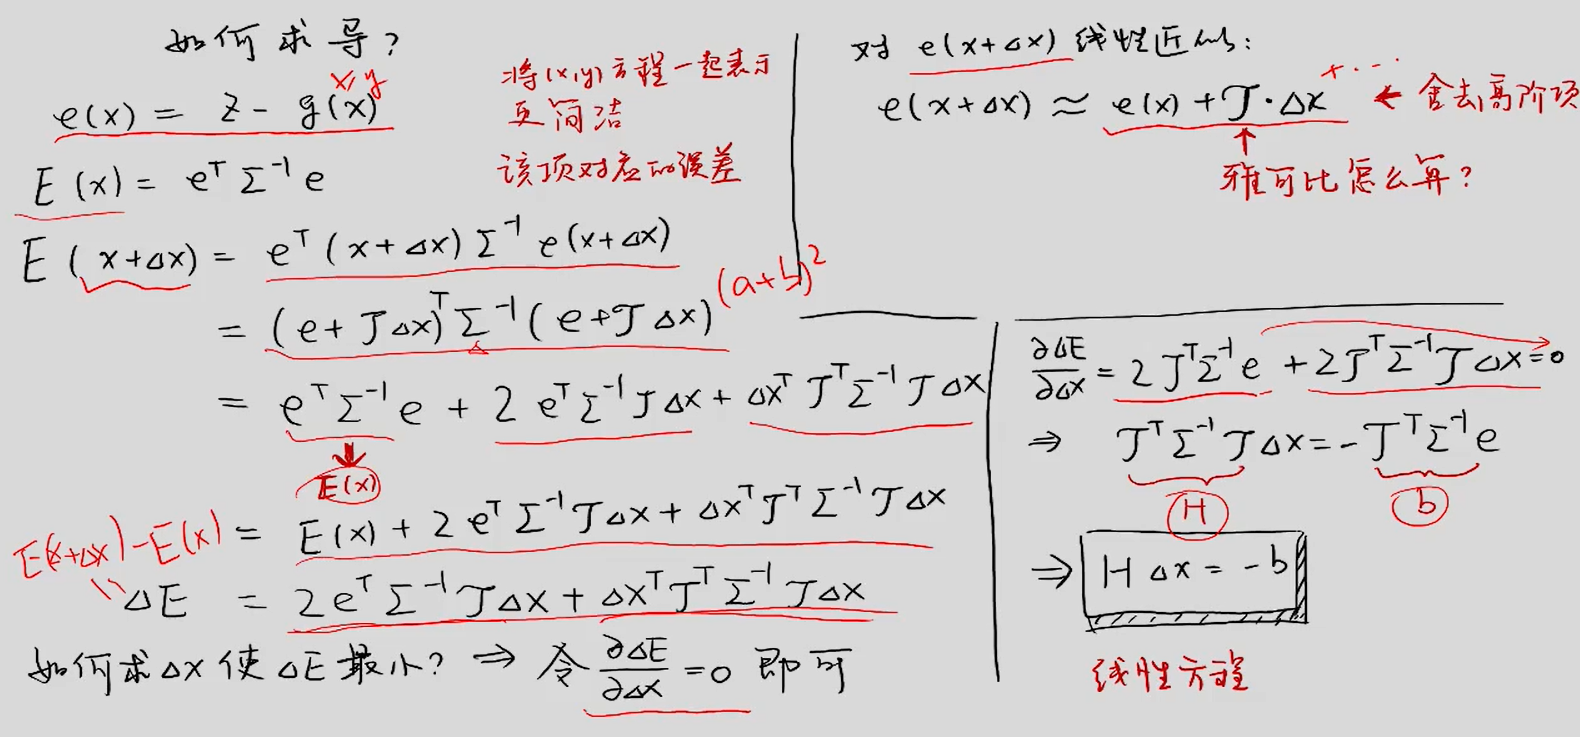 如何求导?
x,y
e(x) = z - g(x)
将(x,y)方程一起表示
更简洁
该项对应的误差
E(x) = eᵀ Σ⁻¹ e
E(x+Δx) = eᵀ(x+Δx) Σ⁻¹ e(x+Δx)
(a+b)²
= (e+JΔx)ᵀ Σ⁻¹ (e+JΔx)
= eᵀ Σ⁻¹ e + 2 eᵀ Σ⁻¹ JΔx + Δxᵀ Jᵀ Σ⁻¹ J Δx
E(x)
= E(x) + 2 eᵀ Σ⁻¹ JΔx + Δxᵀ Jᵀ Σ⁻¹ J Δx
E(x+Δx) - E(x)
ΔE = 2eᵀ Σ⁻¹ JΔx + Δxᵀ Jᵀ Σ⁻¹ JΔx
如何求Δx使ΔE最小? ⇒ 令 ∂ΔE/∂Δx = 0 即可
对 e(x+Δx) 线性近似:
+····
e(x+Δx) ≈ e(x) + J·Δx ← 舍去高阶项
↑
雅可比怎么算?
∂ΔE/∂Δx = 2JᵀΣ⁻¹e + 2JᵀΣ⁻¹JΔx = 0
⇒ JᵀΣ⁻¹JΔx = -JᵀΣ⁻¹e
H b
⇒ HΔx = -b
线性方程